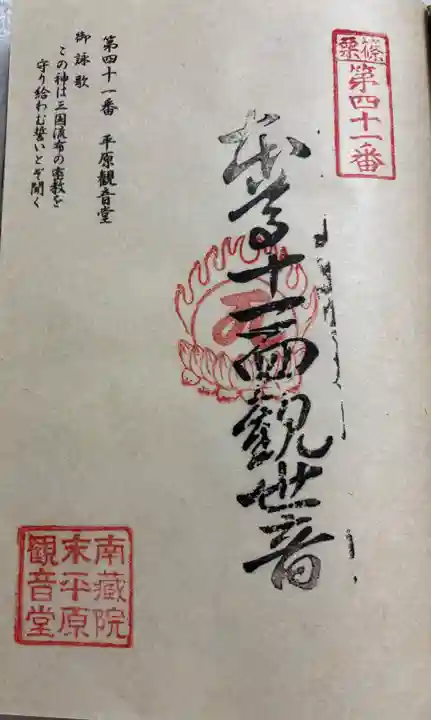 篠栗
第四十一番
本尊十一面観世音
第四十一番　平原観音堂
御詠歌
この神は三国流布の密教を
守り給わむ誓いとぞ聞く
南藏院
末平原
観音堂